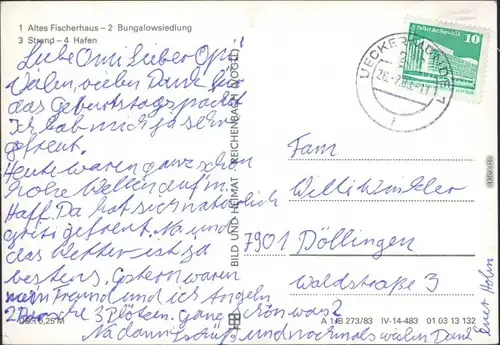 1 Altes Fischerhaus – 2 Bungalowsiedlung
3 Strand – 4 Hafen
Liebe Omi Lieber Opi!
Vielen, vielen Dank für
das Geburtstagspacket
Ich hab mich ja sehr
gefreut.
Heute waren ganz schön
hohe Wellen auf'm
Haff. Da hat sich natürlich
gefreut. Na und
das Wetter ist ja
bestens. Gestern waren
mein Freund und ich Angeln
2 3 Plötzen. ganz schön was?
Na dann tschüß und nochmals vielen Dank
Euer Holm
BILD UND HEIMAT REICHENBACH (VOGTL)
UECKERMÜNDE 1
10
Fam
Willi Winkler
7901 Döllingen
Waldstraße 3
0,25 M
A 1/B 273/83 IV-14-483 01 03 13 132